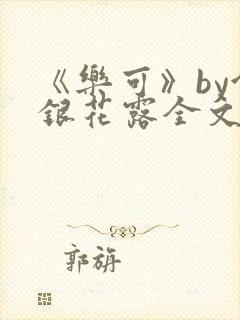 《樂可》by
銀花露全文
郭旃